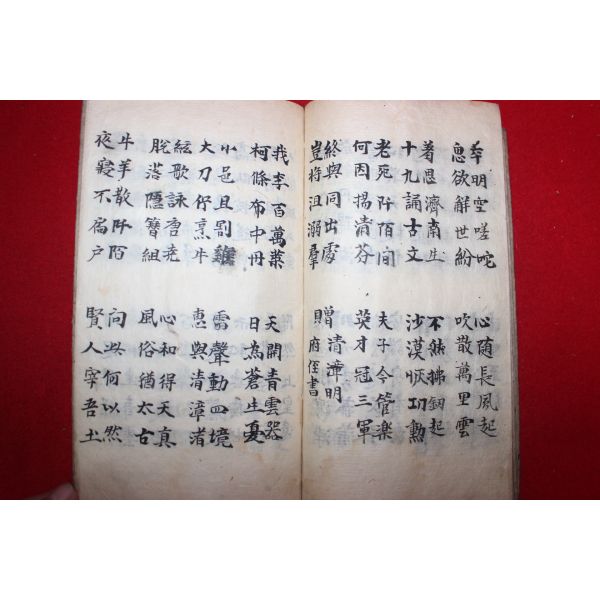 平明空嗟咤
思欲解世紛
心隨長風起
吹散萬里雲
着思濟南生
十九誦古文
不然拂釖起
沙漠收功勳
老死阡陌間
何因揚清芬
夫子今管樂
英才冠三軍
終與同出處
豈將沮溺羣
贈清漳明
府侄書
我李百萬葉
柯條布中州
天開青雲器
日為蒼生憂
小邑且割雞
大刀佇烹牛
雷聲動四境
惠與清漳渚
絃歌詠唐堯
脫落隱簪組
心和得天真
風俗猶太古
牛羊散阡陌
夜寢不扃戶
問此何以然
賢人宰吾土